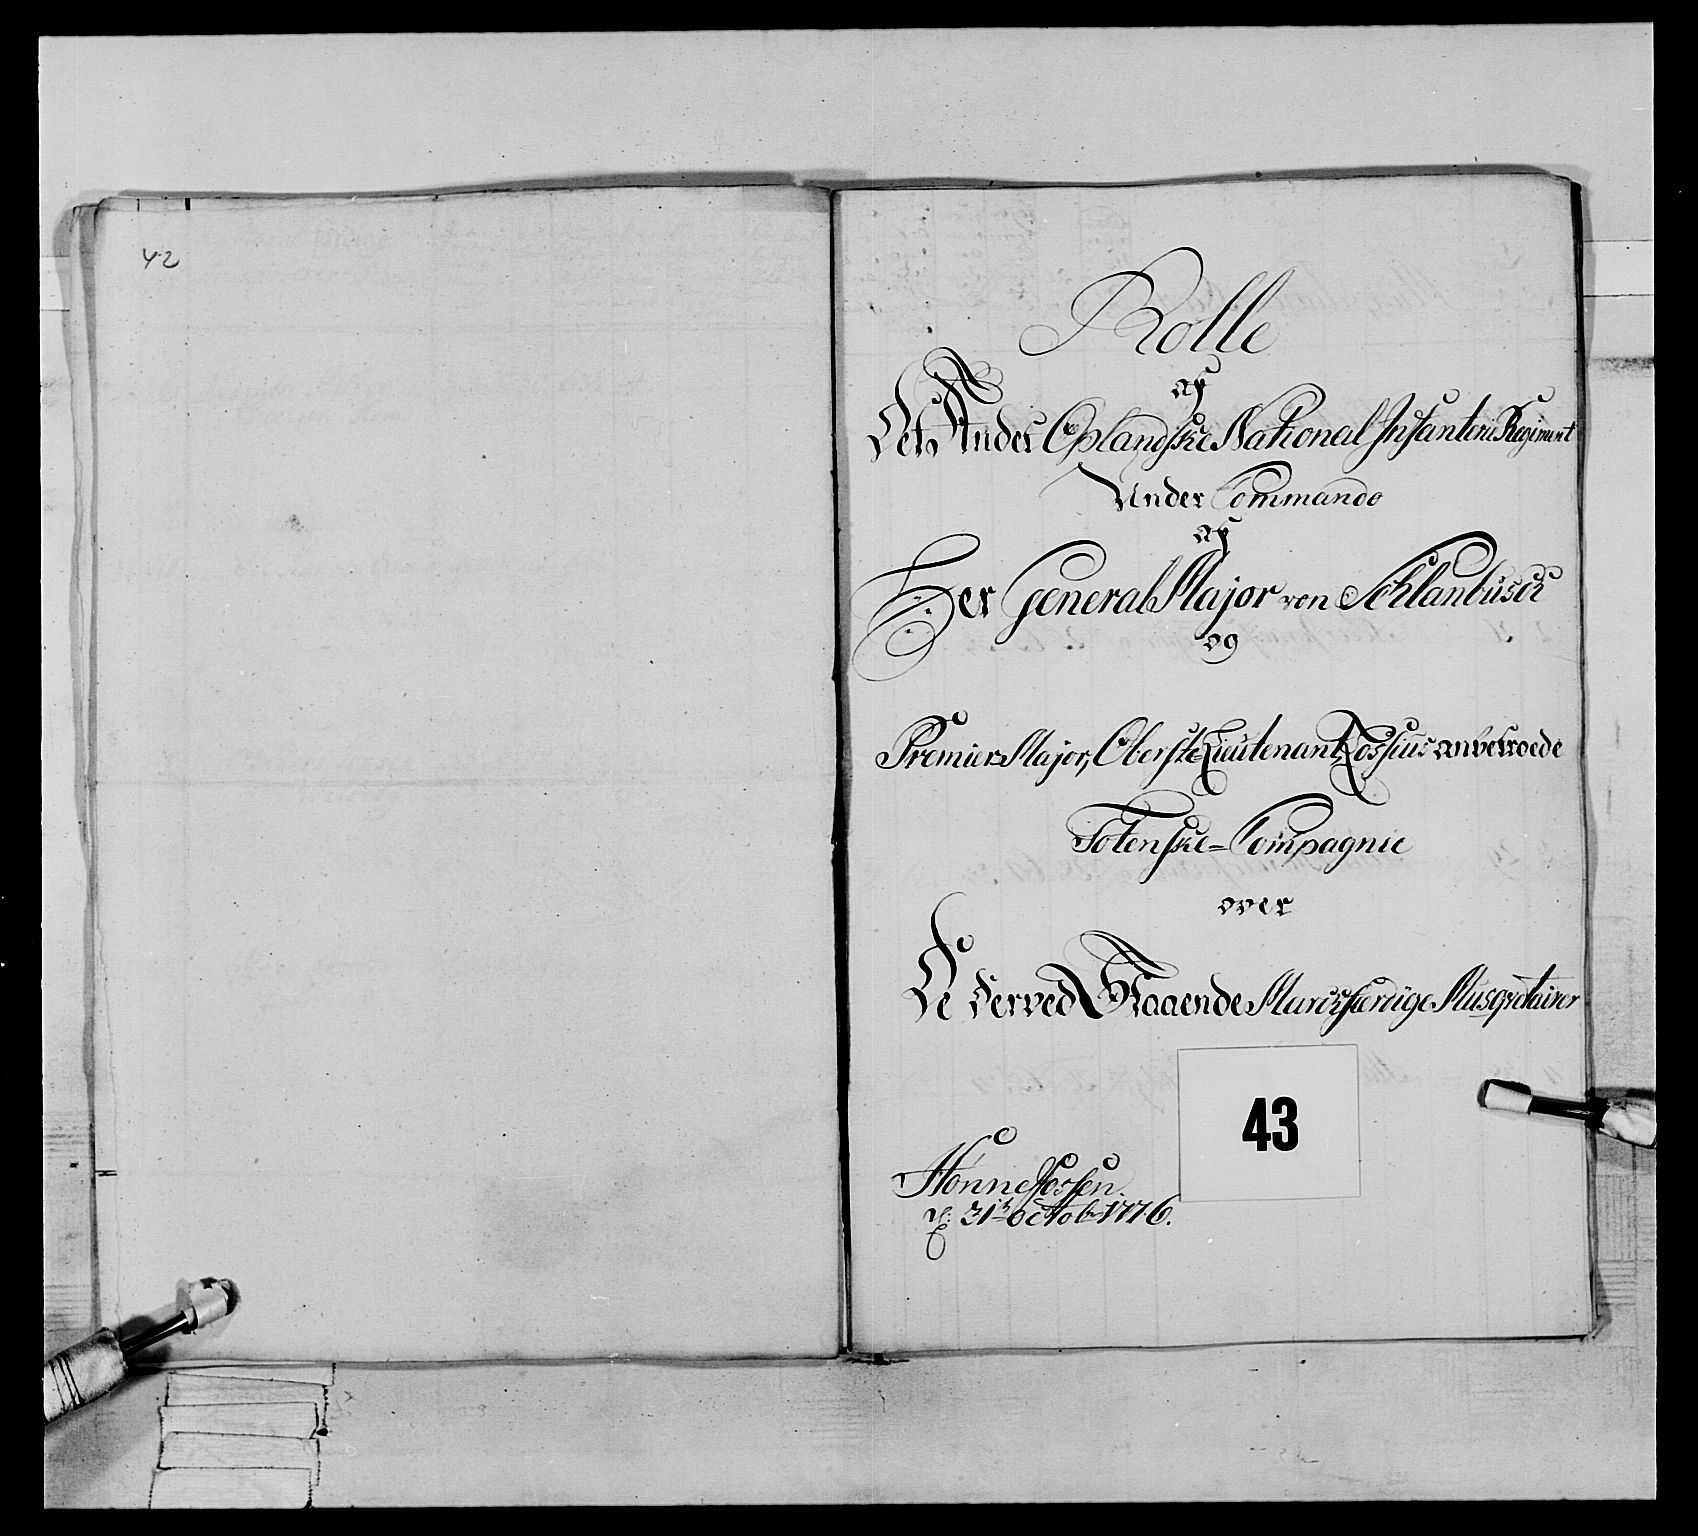 42
Rolle
af
Det Andet Oplandske National Infanterie Regiment
Under Commando
af
Her General Major von Schlanbusch
og
Premier Major, Oberste Lieutenant Lossius anbetroede
Totenske-Compagnie
over
De derved Staaende Marchfærdige Musqvetairer
43
Hønnefossen
d: 31te Octobr 1776.